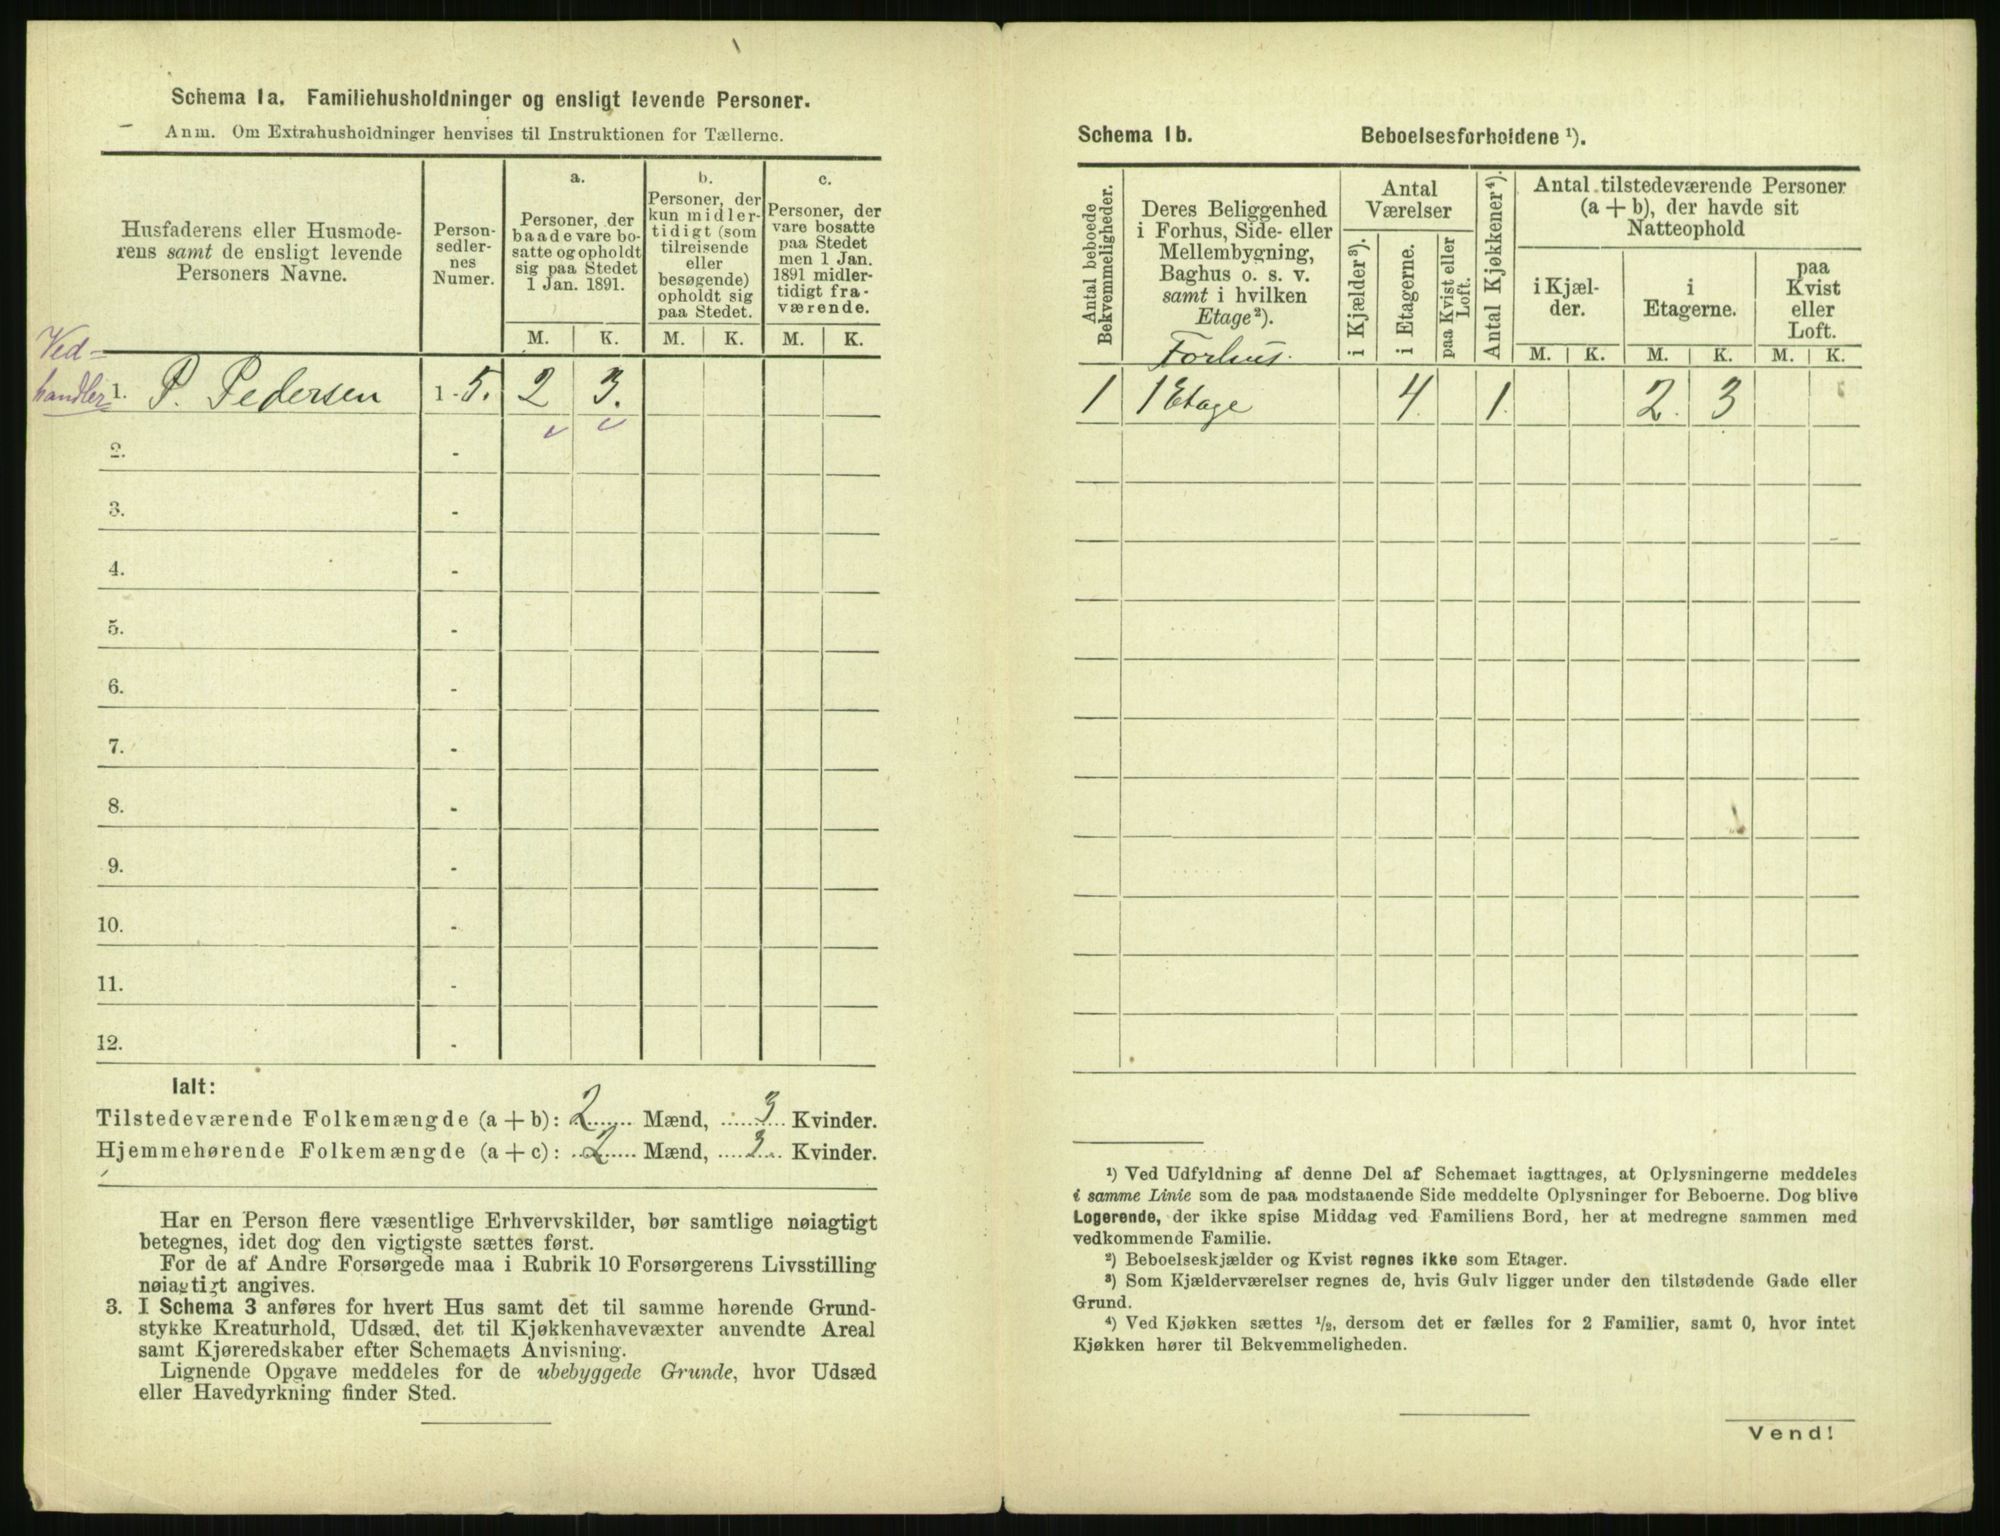 Schema 1a. Familiehusholdninger og ensligt levende Personer.
Anm. Om Extrahusholdninger henvises til Instruktionen for Tællerne.
Husfaderens eller Husmode-
rens samt de ensligt levende
Personers Navne.
Person-
sedler-
nes
Numer.
a.
Personer, der
baade vare bo-
satte og opholdt
sig paa Stedet
1 Jan. 1891.
b.
Personer, der
kun midler-
tidigt (som
tilreisende
eller
besøgende)
opholdt sig
paa Stedet.
c.
Personer, der
vare bosatte
paa Stedet
men 1 Jan.
1891 midler-
tidigt fra-
værende.
M. K. M. K. M. K.
Ved-
handler
1. P. Pedersen 1-5. 2 3.
2. -
3. -
4. -
5. -
6. -
7. -
8. -
9. -
10. -
11. -
12. -
Ialt:
Tilstedeværende Folkemængde (a+b): 2 Mænd, 3 Kvinder.
Hjemmehørende Folkemængde (a+c): 2 Mænd, 3 Kvinder.
Har en Person flere væsentlige Erhvervskilder, bør samtlige nøiagtigt
betegnes, idet dog den vigtigste sættes først.
For de af Andre Forsørgede maa i Rubrik 10 Forsørgerens Livsstilling
nøiagtigt angives.
3. I Schema 3 anføres for hvert Hus samt det til samme hørende Grund-
stykke Kreaturhold, Udsæd, det til Kjøkkenhavevæxter anvendte Areal
samt Kjøreredskaber efter Schemaets Anvisning.
Lignende Opgave meddeles for de ubebyggede Grunde, hvor Udsæd
eller Havedyrkning finder Sted.
Schema 1b. Beboelsesforholdene ¹).
Antal beboede
Bekvemmeligheder.
Deres Beliggenhed
i Forhus, Side- eller
Mellembygning,
Baghus o. s. v.
samt i hvilken
Etage²).
Antal
Værelser
i Kjælder³).
i Etagerne.
paa Kvist eller
Loft.
Antal Kjøkkener⁴).
Antal tilstedeværende Personer
(a + b), der havde sit
Natteophold
i Kjæl-
der.
i
Etagerne.
paa
Kvist
eller
Loft.
M. K. M. K. M. K.
Forhus.
1 1 Etage 4. 1. 2. 3
¹) Ved Udfyldning af denne Del af Schemaet iagttages, at Oplysningerne meddeles
i samme Linie som de paa modstaaende Side meddelte Oplysninger for Beboerne. Dog blive
Logerende, der ikke spise Middag ved Familiens Bord, her at medregne sammen med
vedkommende Familie.
²) Beboelseskjælder og Kvist regnes ikke som Etager.
³) Som Kjælderværelser regnes de, hvis Gulv ligger under den tilstødende Gade eller
Grund.
⁴) Ved Kjøkken sættes ½, dersom det er fælles for 2 Familier, samt 0, hvor intet
Kjøkken hører til Bekvemmeligheden.
Vend!